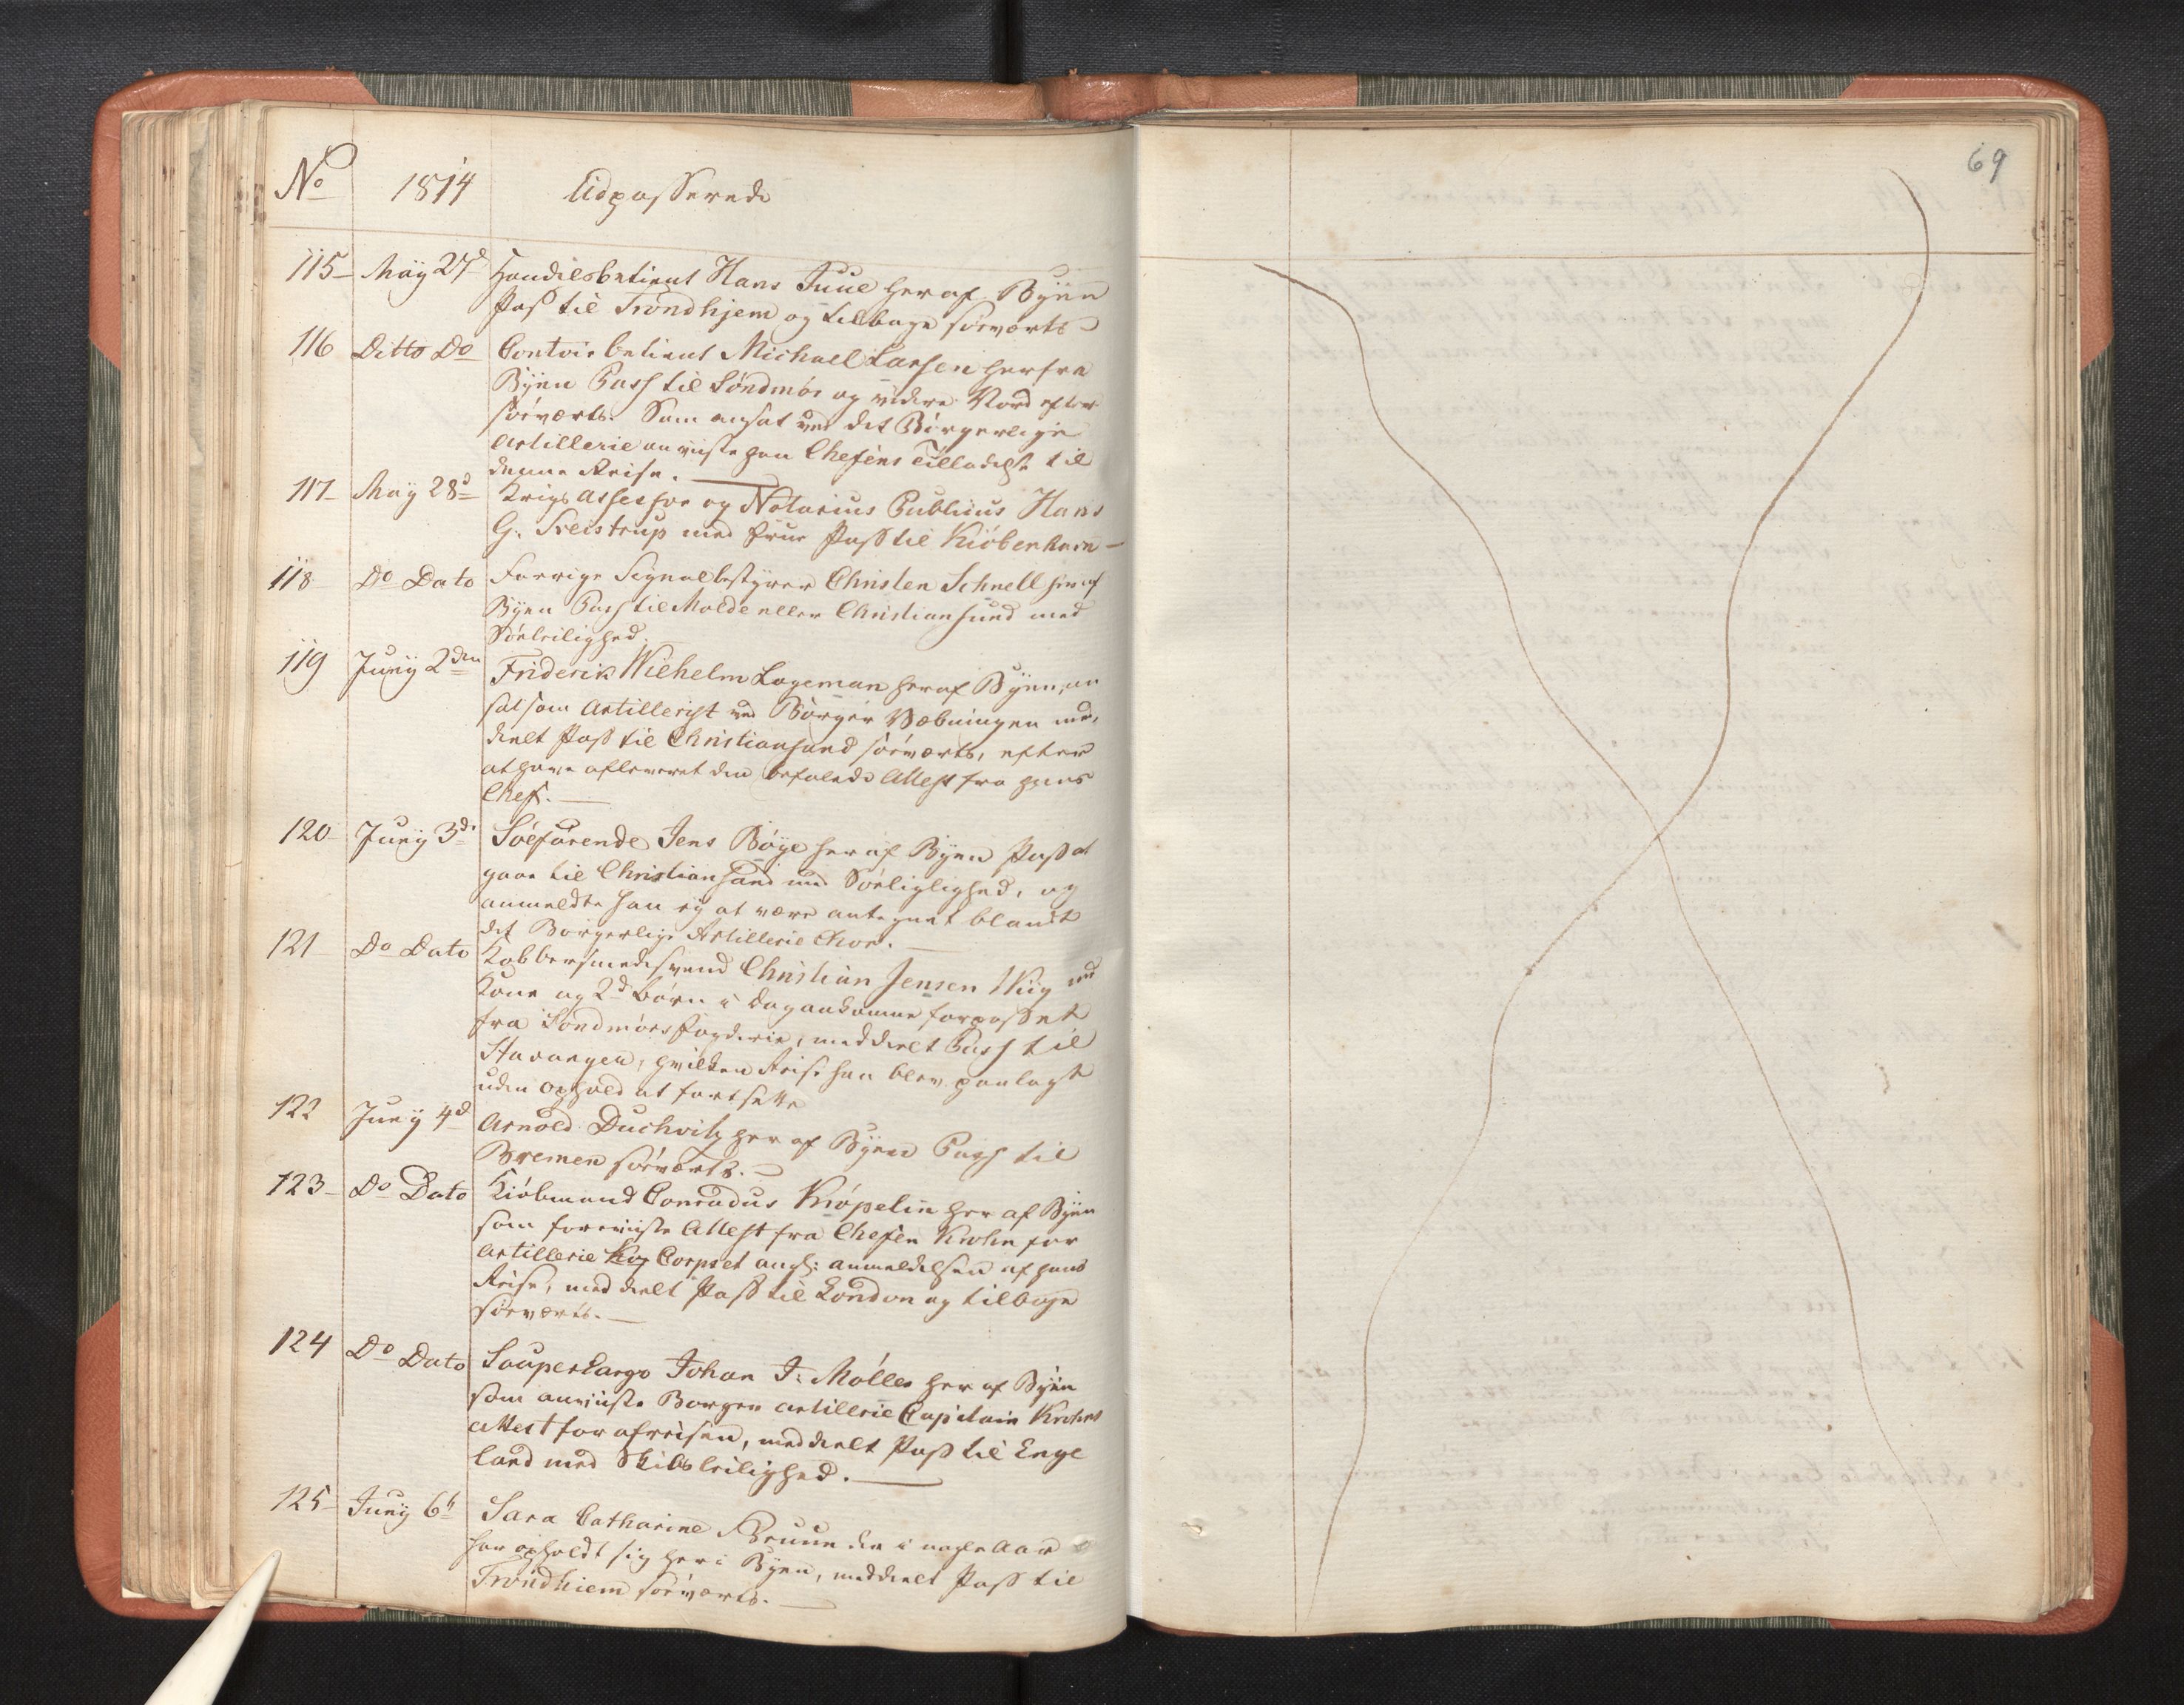 No 1814 Udpasserede
115 May 27d Handelsbetient Hans Juul her af Byen
Pas til Trondhjem og tilbage søeværts
116 Ditto Do Contoirbetient Michael Larsen herfra
Byen Pass til Søndmør og videre Nord efter
søeværts. Som ansat ved det Borgerlige
Artillerie anviiste han Chefens Tilladelse til
denne Reise.
117 May 28d Krigs Assessor og Notarius Publicus Hans
G. Treistrup med Frue Pass til Kiöbenhavn
118 Do Dato Forrige Signalbestyrer Christen Schnell her af
Byen Pass til Molde eller Christiansund med
Söeleilighed.
119 Juny 2den Friderik Wilhelm Lageman her af Byen, an
sat som Artillerist ved Borger Væbningen med,
deelt Pass til Christiansund søeværts, efter
at have afleveret den befalede Attest fra hans
Chef.
120 Juny 3d Söefarende Jens Böye her af Byen Pass at
gaae til Christiansand med Söeliglighed, og
anmeldte han ej at være antegnet blandt
det Borgerlige Artillerie Chor.
121 Do Dato Kobbersmedsvend Christian Jensen Wiig med
Kone og 2d børn i dag ankomne forpasset
fra Söndmörs fogderie, meddeelt Pass til
Stavanger, hvilken Reise han blev paalagt
uden ophold at fortsette
122 Juny 4d Arnold Duchvitz her af Byen Pass til
Bremen søeværts.
123 Do Dato Kiöbmand Conradus Kröpelin her af Byen
som foreviiste Attest fra Chefen Krohn for
Artillerie Kor Corpset ang: anmeldelsen af hans
Reise, meddeelt Pass til London og tilbage
søeværts.
124 Do Dato Souperkargo Johan J: Møller her af Byen
som anviiste Borger artillerie Capitain Krohns
attest for afreisen, meddeelt Pass til Enge
land med Skibsleilighed.
125 Juny 6t Sara Catharine Bruun der i nogle Aar
har opholdt sig her i Byen, meddeelt Pass til
Trondhiem søeværts.
69